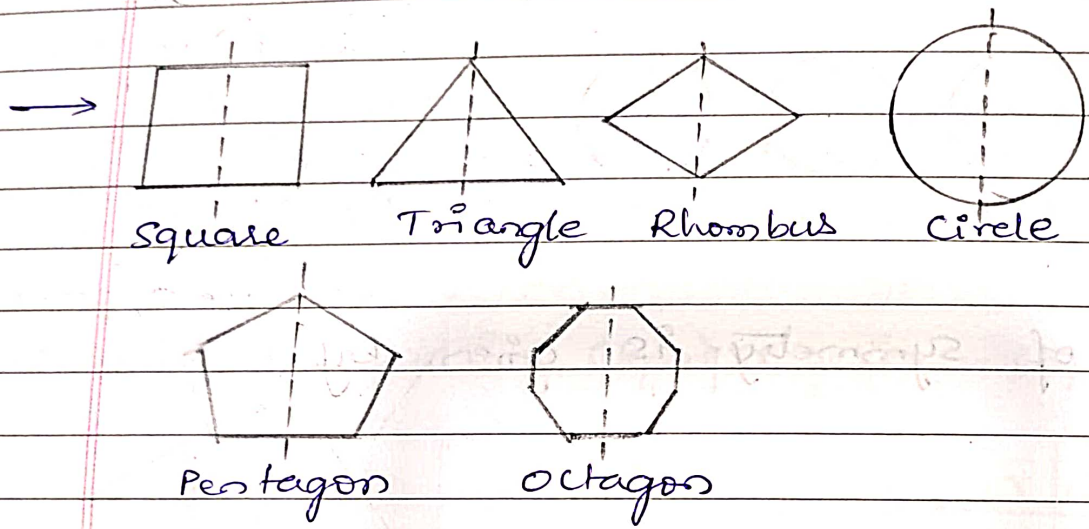 Square Triangle Rhombus Circle
Pentagon Octagon